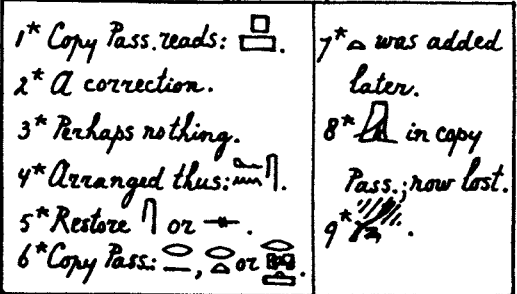 1* Copy Pass. reads: 𓊪𓈇.
2* A correction.
3* Perhaps nothing.
4* Arranged thus: .
5* Restore 𓋴 or 𓊃.
6* Copy Pass.: , or .
7* 𓏏 was added
later.
8* in copy
Pass.; now lost.
9* .